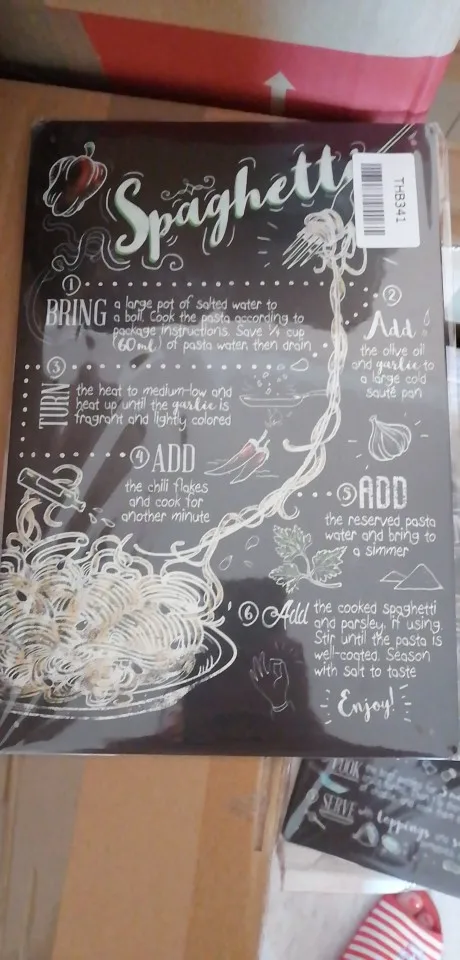 Spaghett
THB341
1
BRING a large pot of salted water to
a boil. Cook the pasta according to
package instructions. Save ¼ cup
(60ml) of pasta water, then drain
2
Add
the olive oil
and garlic to
a large cold
sauté pan
3
TURN the heat to medium-low and
heat up until the garlic is
fragrant and lightly colored
4 ADD
the chili flakes
and cook for
another minute
5 ADD
the reserved pasta
water and bring to
a simmer
6 Add the cooked spaghetti
and parsley, if using.
Stir until the pasta is
well-coated. Season
with salt to taste
Enjoy!
SERVE
toppings